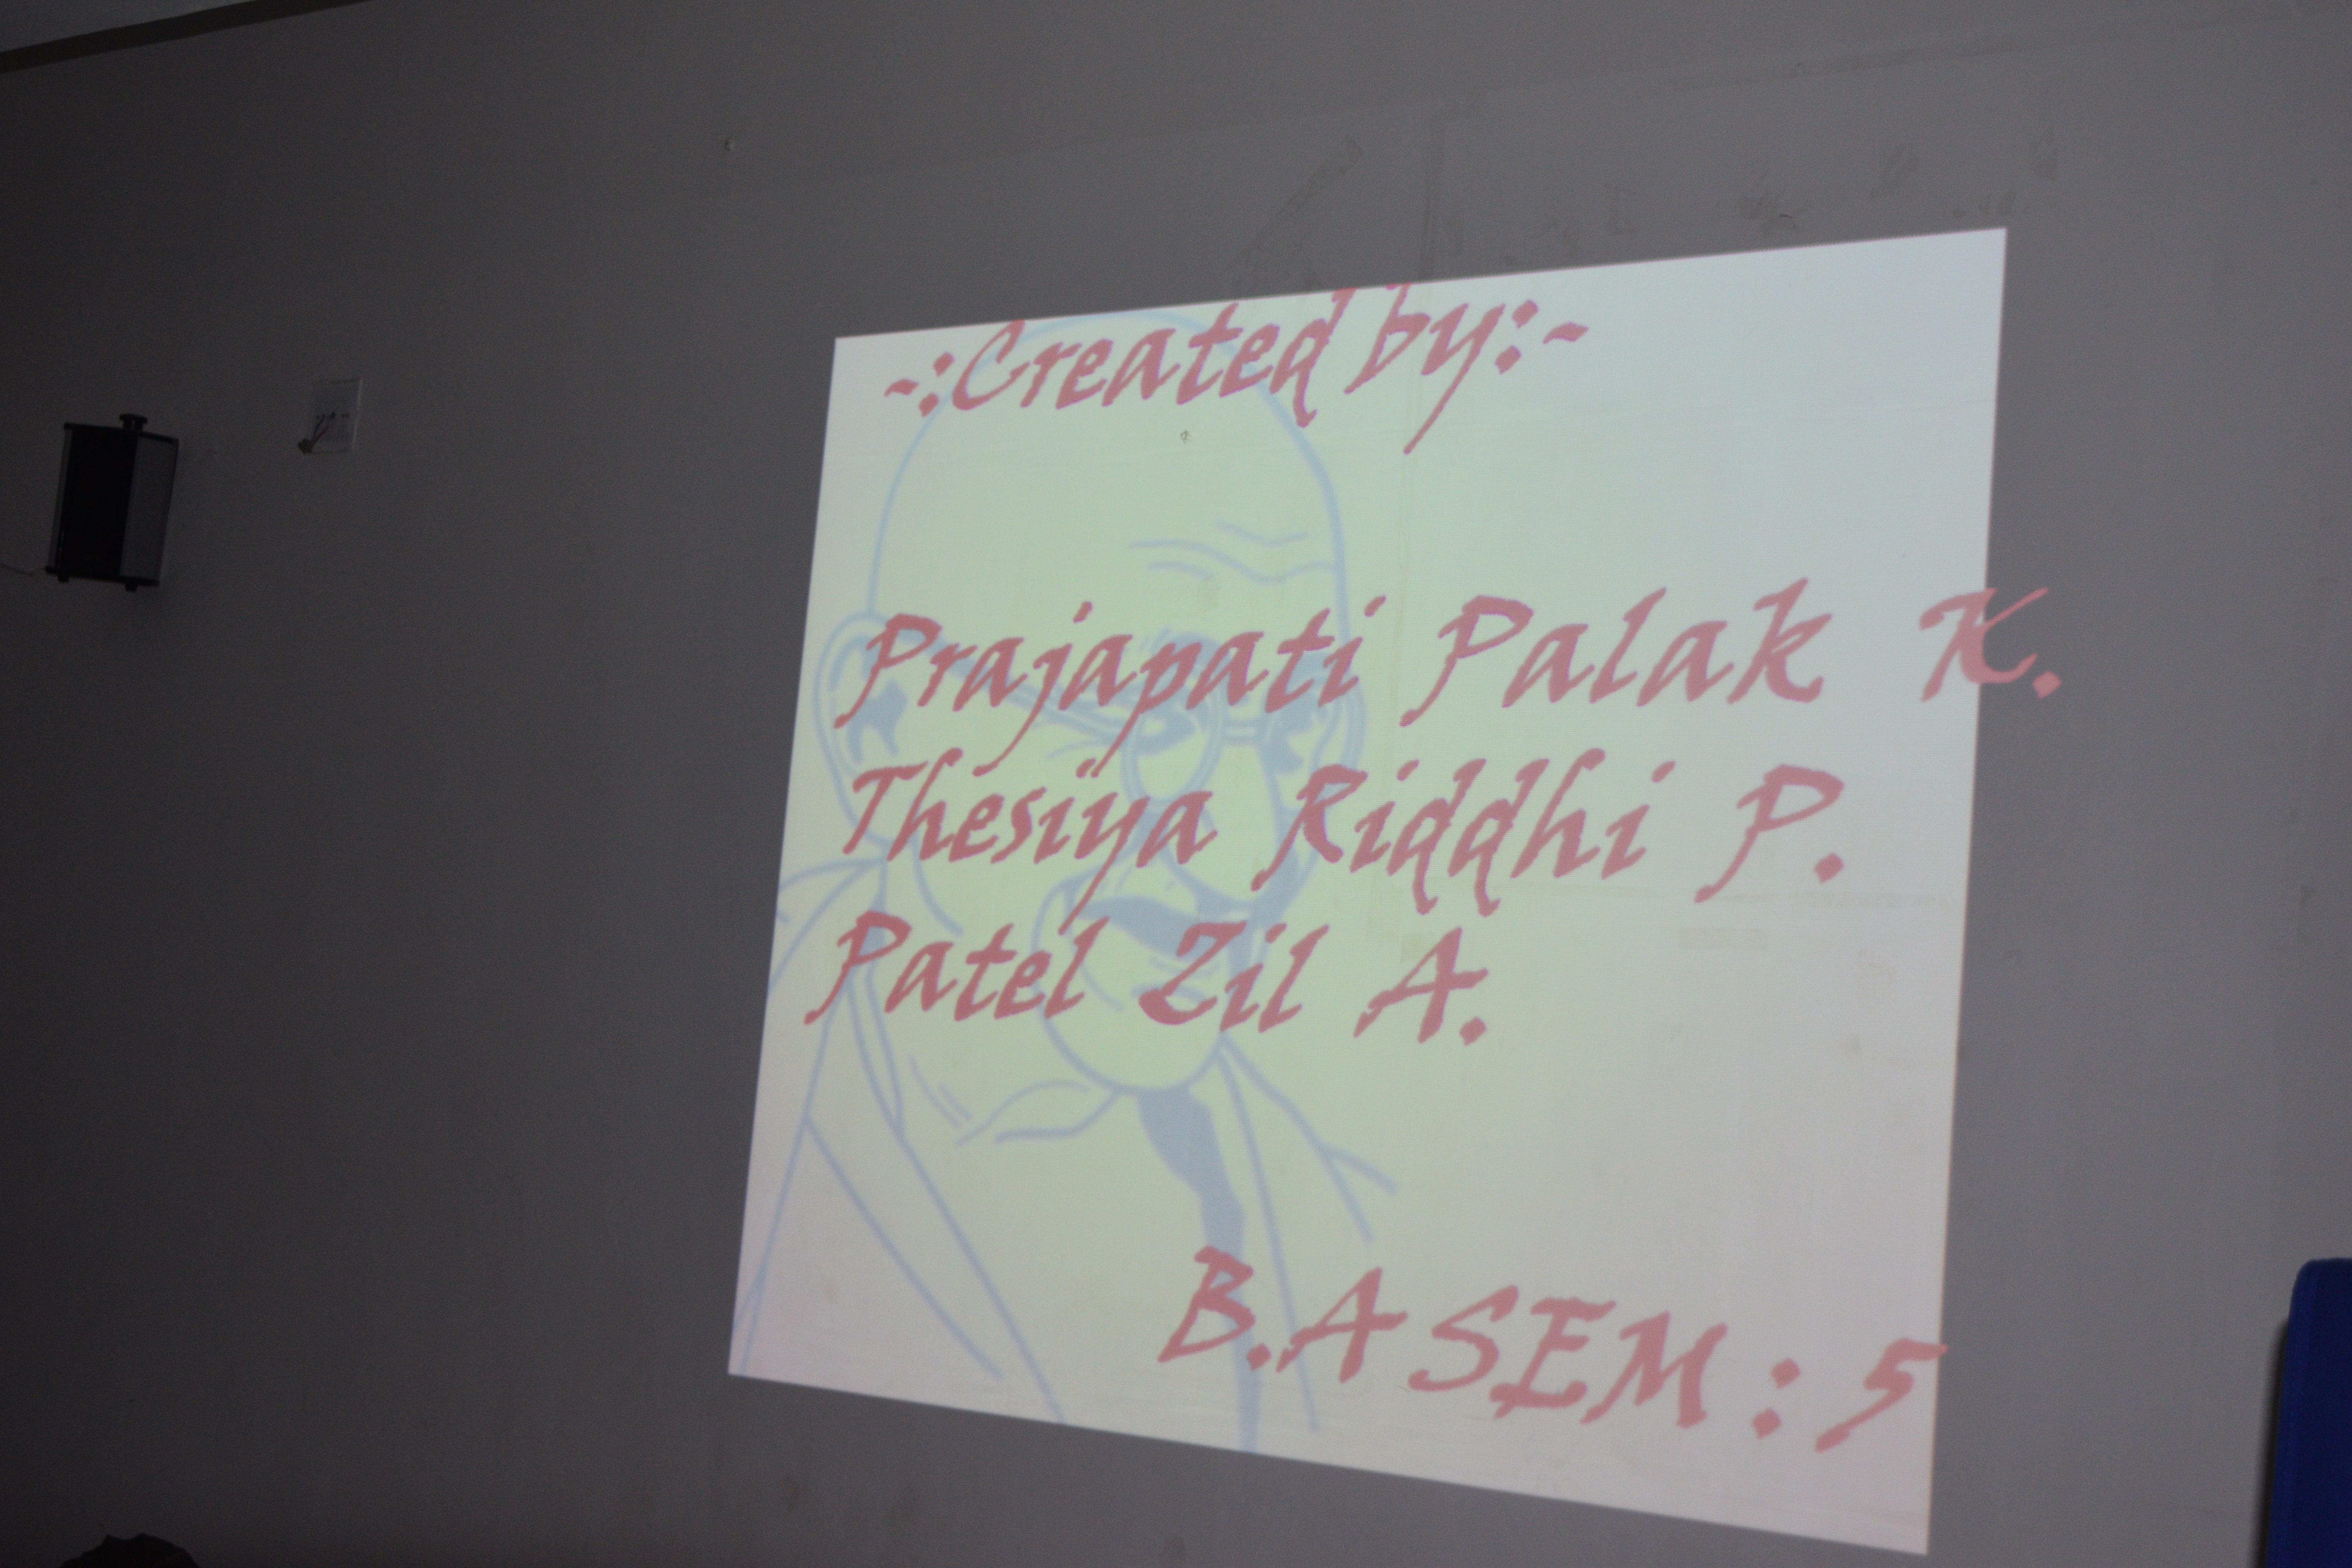 -:Created by:-
Prajapati Palak K.
Thesiya Riddhi P.
Patel Zil A.
B.A SEM : 5